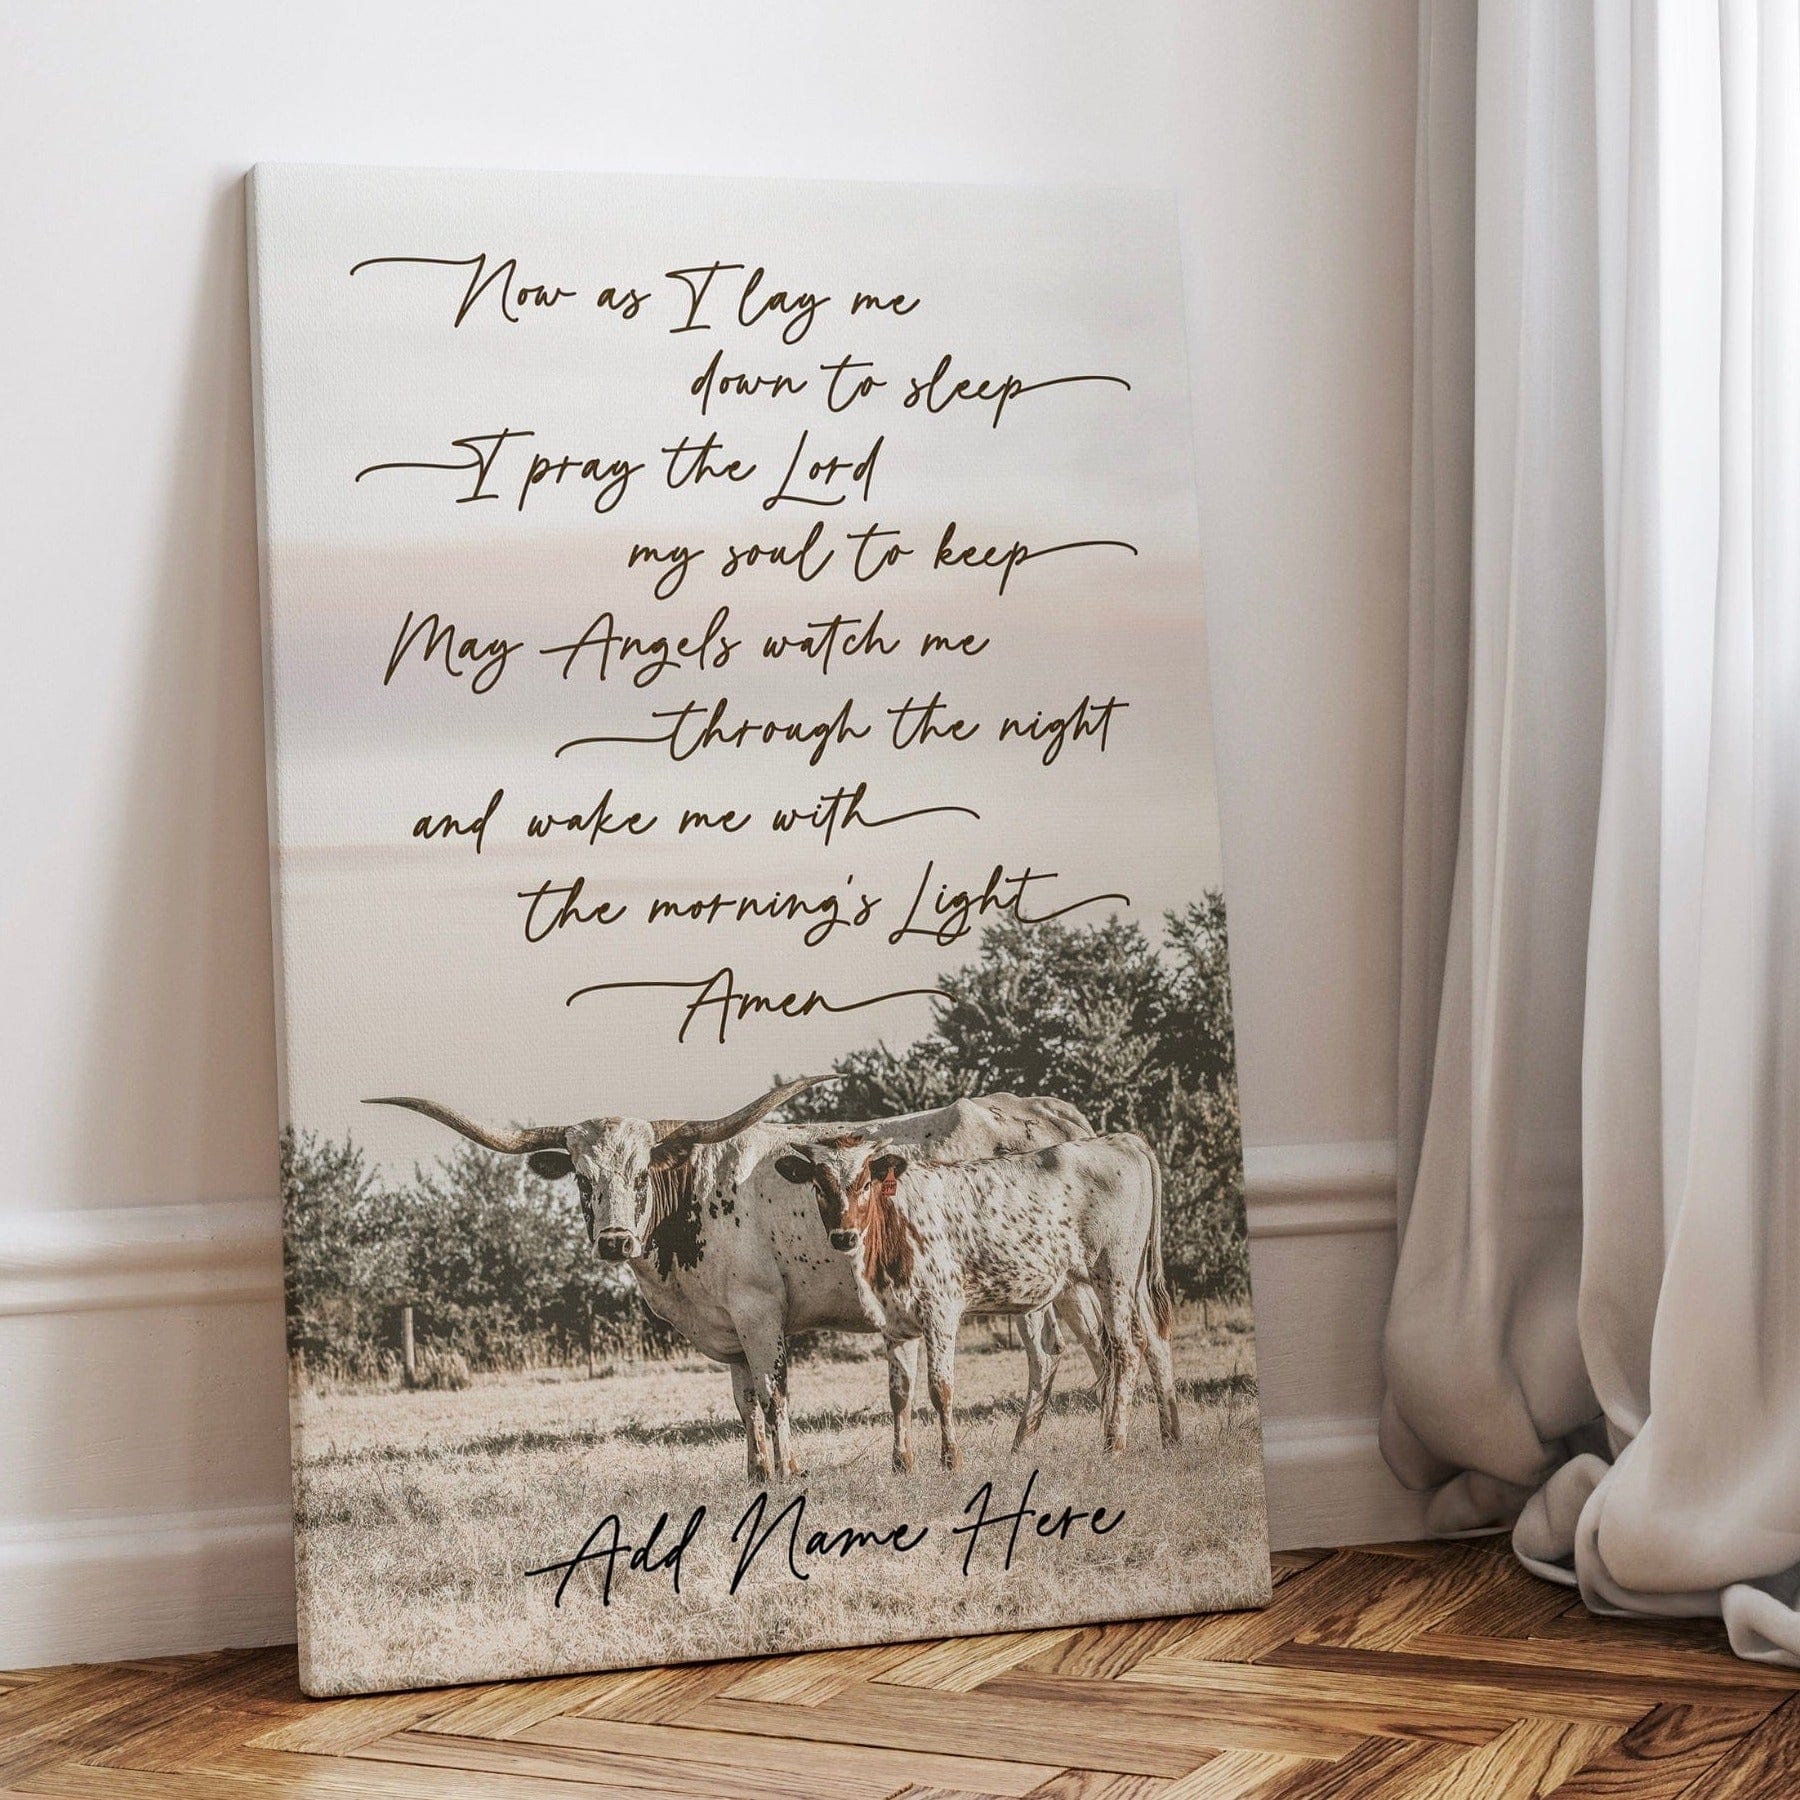 Now as I lay me
down to sleep
I pray the Lord
my soul to keep
May Angels watch me
through the night
and wake me with
the morning's Light
Amen
Add Name Here